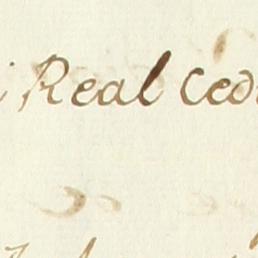 Real Ced